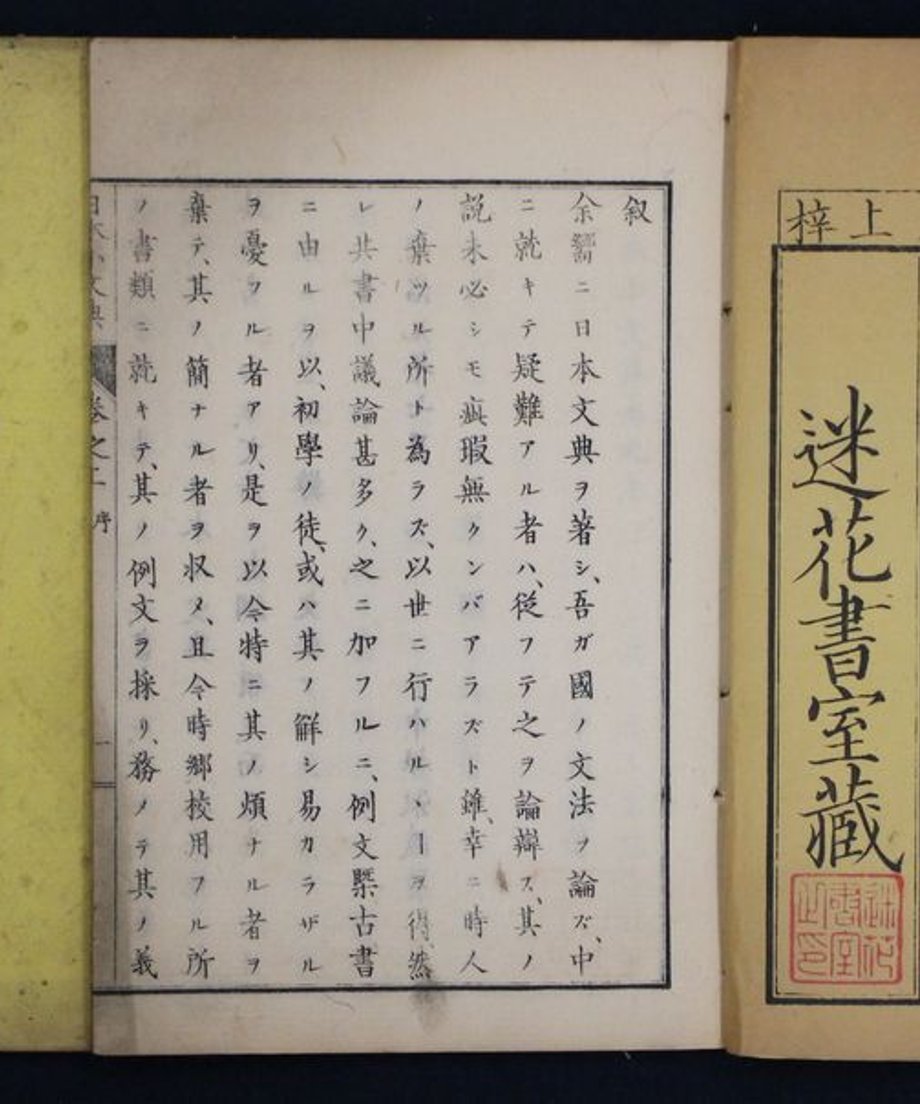 上梓
迷花書室藏
迷花書室之印
叙
余嚮ニ日本文典ヲ著シ、吾ガ國ノ文法ヲ論ズ、中
ニ就キテ疑難アル者ハ、従フテ之ヲ論辯ス、其ノ
説未必シモ瘢瑕無クンバアラズト雖、幸ニ時人
ノ棄ツル所ト為ラズ、以世ニ行ハルヽヿヲ得、然
レ共書中議論甚多ク、之ニ加フルニ、例文槩古書
ニ由ルヲ以、初學ノ徒、或ハ其ノ觧シ易カラザル
ヲ憂フル者アリ、是ヲ以今特ニ其ノ煩ナル者ヲ
棄テ、其ノ簡ナル者ヲ収メ、且今時郷校用フル所
ノ書類ニ就キテ、其ノ例文ヲ採リ、務メテ其ノ義
日本小文典
卷之一
序
一